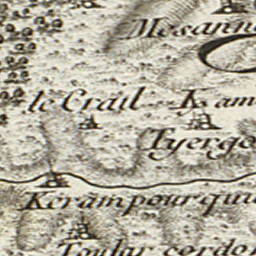 Mesanne
le Crail Kam
Tyergo
Kerampourqui
Toular cordo